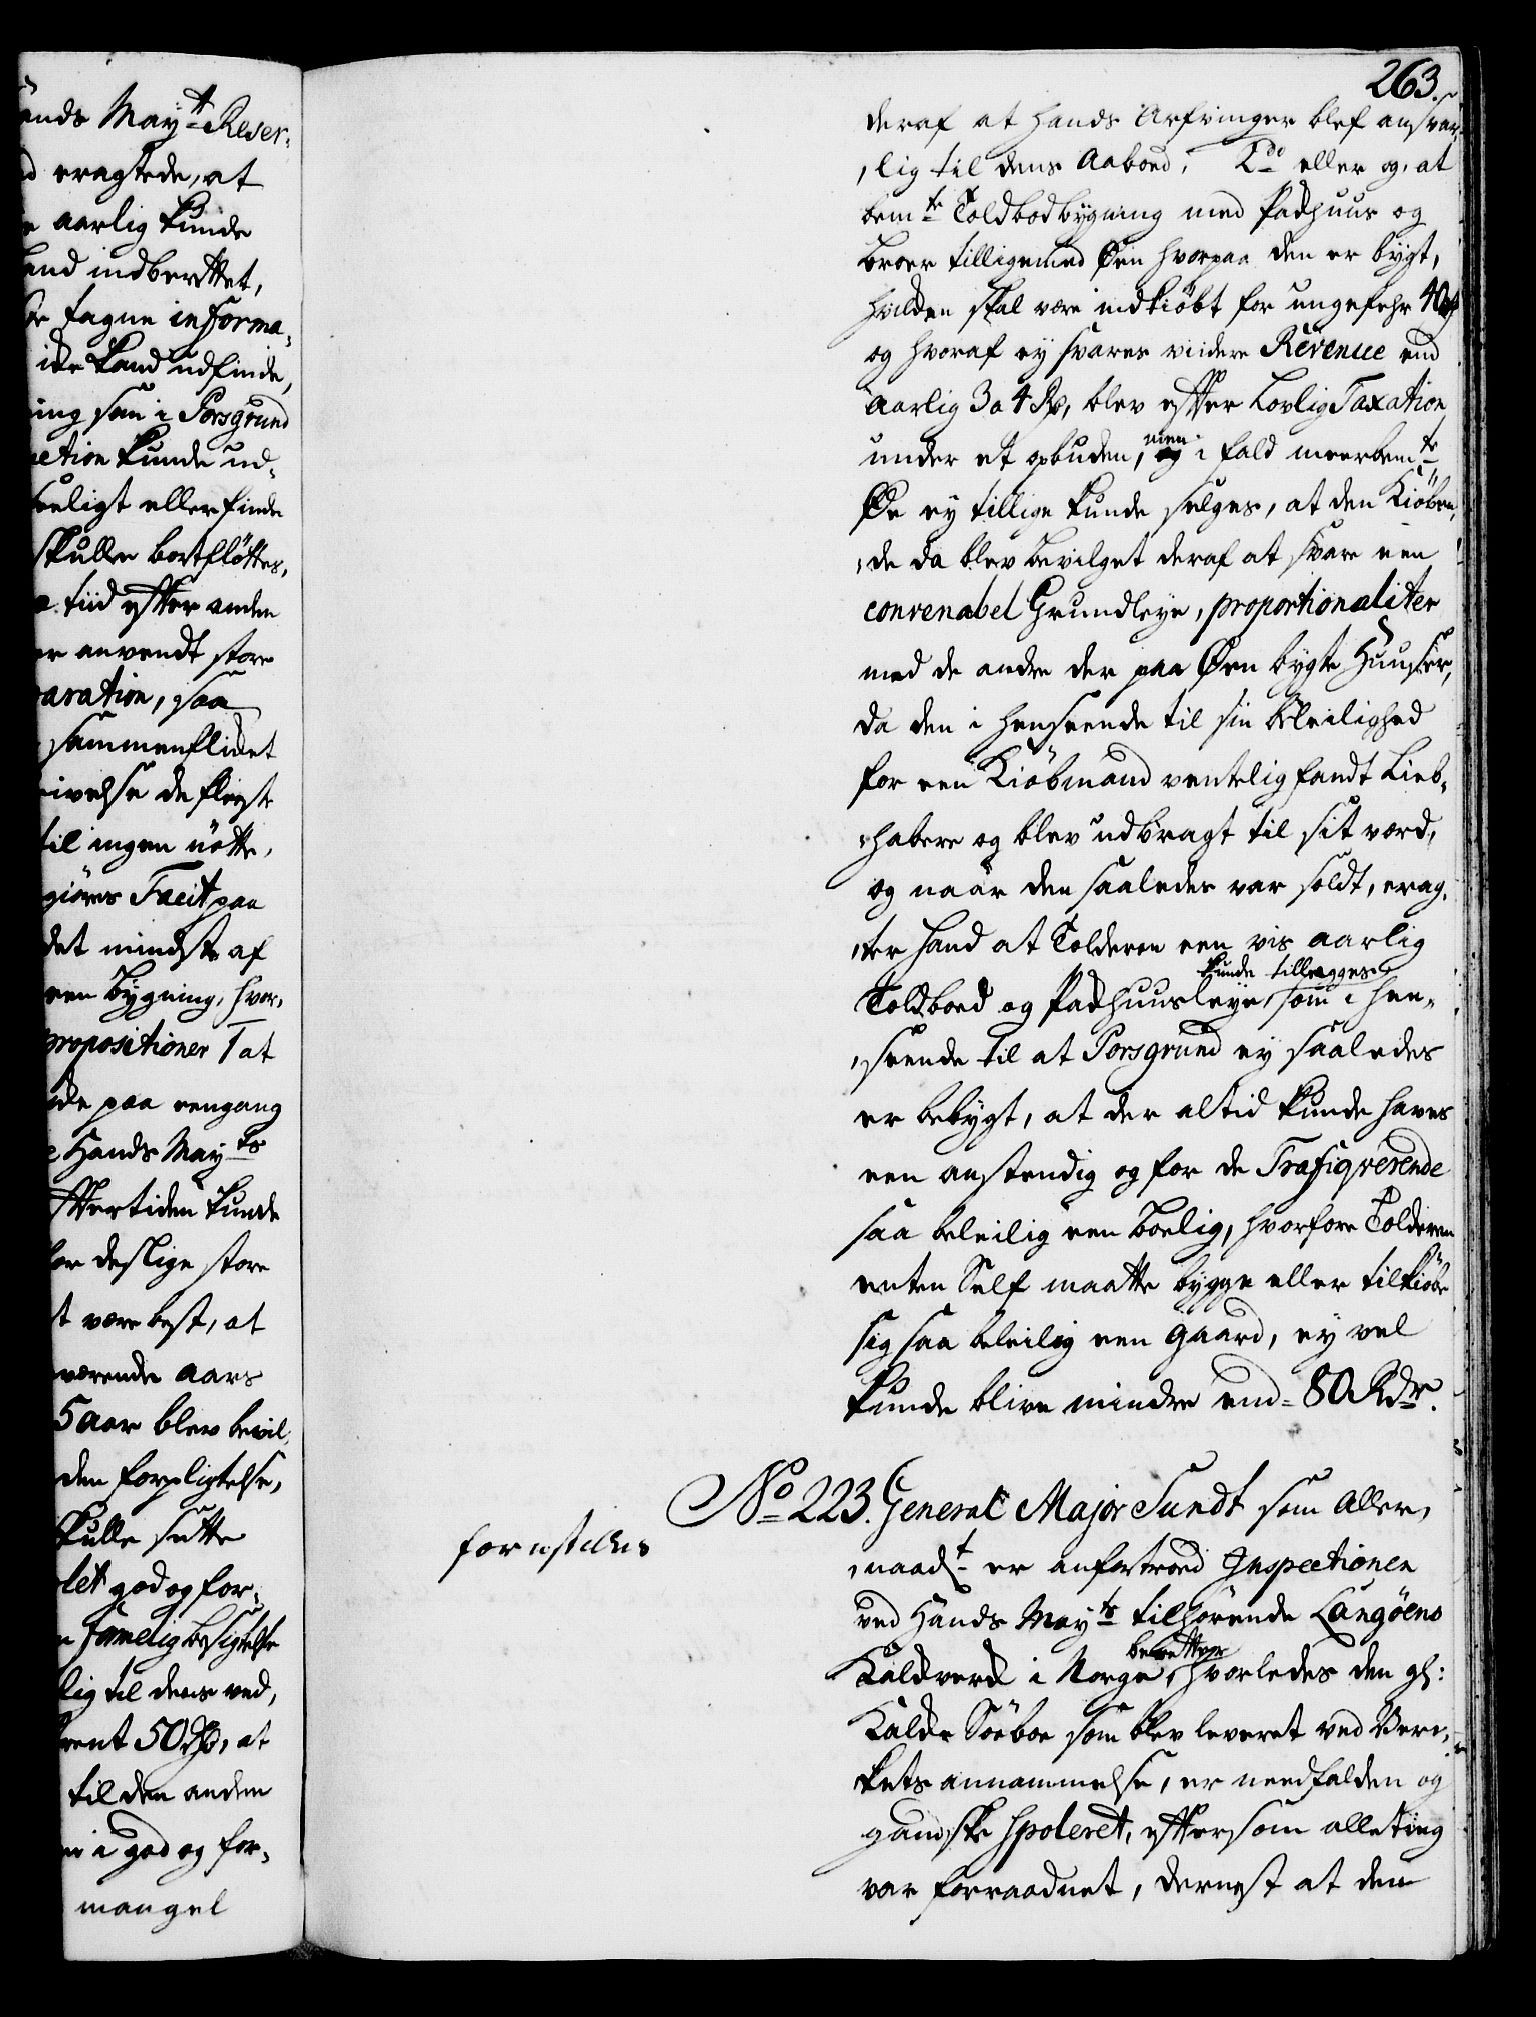 ands Mayt Reser-
d eragtede, at
e aarlig kunde
hand indberettet,
de tagne informa-
ide kand udfinde,
ing som i Porsgrund
ction kunde ud-
seeligt eller finde
skulle bortfløttes,
e tiid effter anden
er anvendt store
paration, saa
sammenflicket
rivelse de fleeste
til ingen nøtte,
giøres Facit paa
det mindste af
een bygning, hvor-
propositioner 1 at
de paa eengang
e Hands Mayts
effter tiden kunde
for deslige store
t være best, at
værende aars
5 aar blev bevil-
den forpligtelse,
skulle sætte
let god og for-
n fornelig besigtelse
lig til dens ved,
vent 50 Rdr, at
til den anden
m i god og for-
mangel
263.
deraf at hands Arfvinger blef ansvar-
lig til dens Aaboed. 2do eller og, at
bemte Toldbodbygning med Pachuus og
broer tilligemed Øen hvorpaa den er bygt,
hvilcken skal være indkiøbt for ungefehr 40 rd
og hvoraf ey svares viidere Revenue end
aarlig 3 a 4 Rd, blev effter Lovlig Taxation
under et opbuden, men i fald meerbemte
Øe ey tillige kunde selges, at den Kiøben-
de da blev bevilget deraf at svare een
convenabel Grundleye, proportionaliter
med de andre der paa Øen bygte Huuser,
da den i henseende til sin beleilighed
for een Kiøbmand ventelig fandt Lieb-
habere og blev udbragt til sit værd,
og naar den saaledes var soldt, erag-
ter hand at Tolderen een vis aarlig
kunde tillegges
Toldboed og Pachuusleye, som i hen-
seende til at Porsgrund ey saaledes
er bebygt, at der altid kunde haves
een anstendig og for de Trafiqverende
saa beleilig een boelig, hvorfore Tolderen
enten Self maatte bygge eller tilkiøbe
sig saa beleilig een gaard, ey vel
kunde blive mindre end 80 Rdr.
No 223. General Major Sundt som Aller-
forestilles
naadt er anfortroed Inspectionen
ved Hands Mayts tilhørende Langøens
beretter
Kalckverck i Norge, hvorledes den gl:
Kalcke Søeboe som blev leveret ved Ver-
kets annammelse, er needfalden og
gandske spoleret, efftersom alleting
var forraadnet, dernest at den